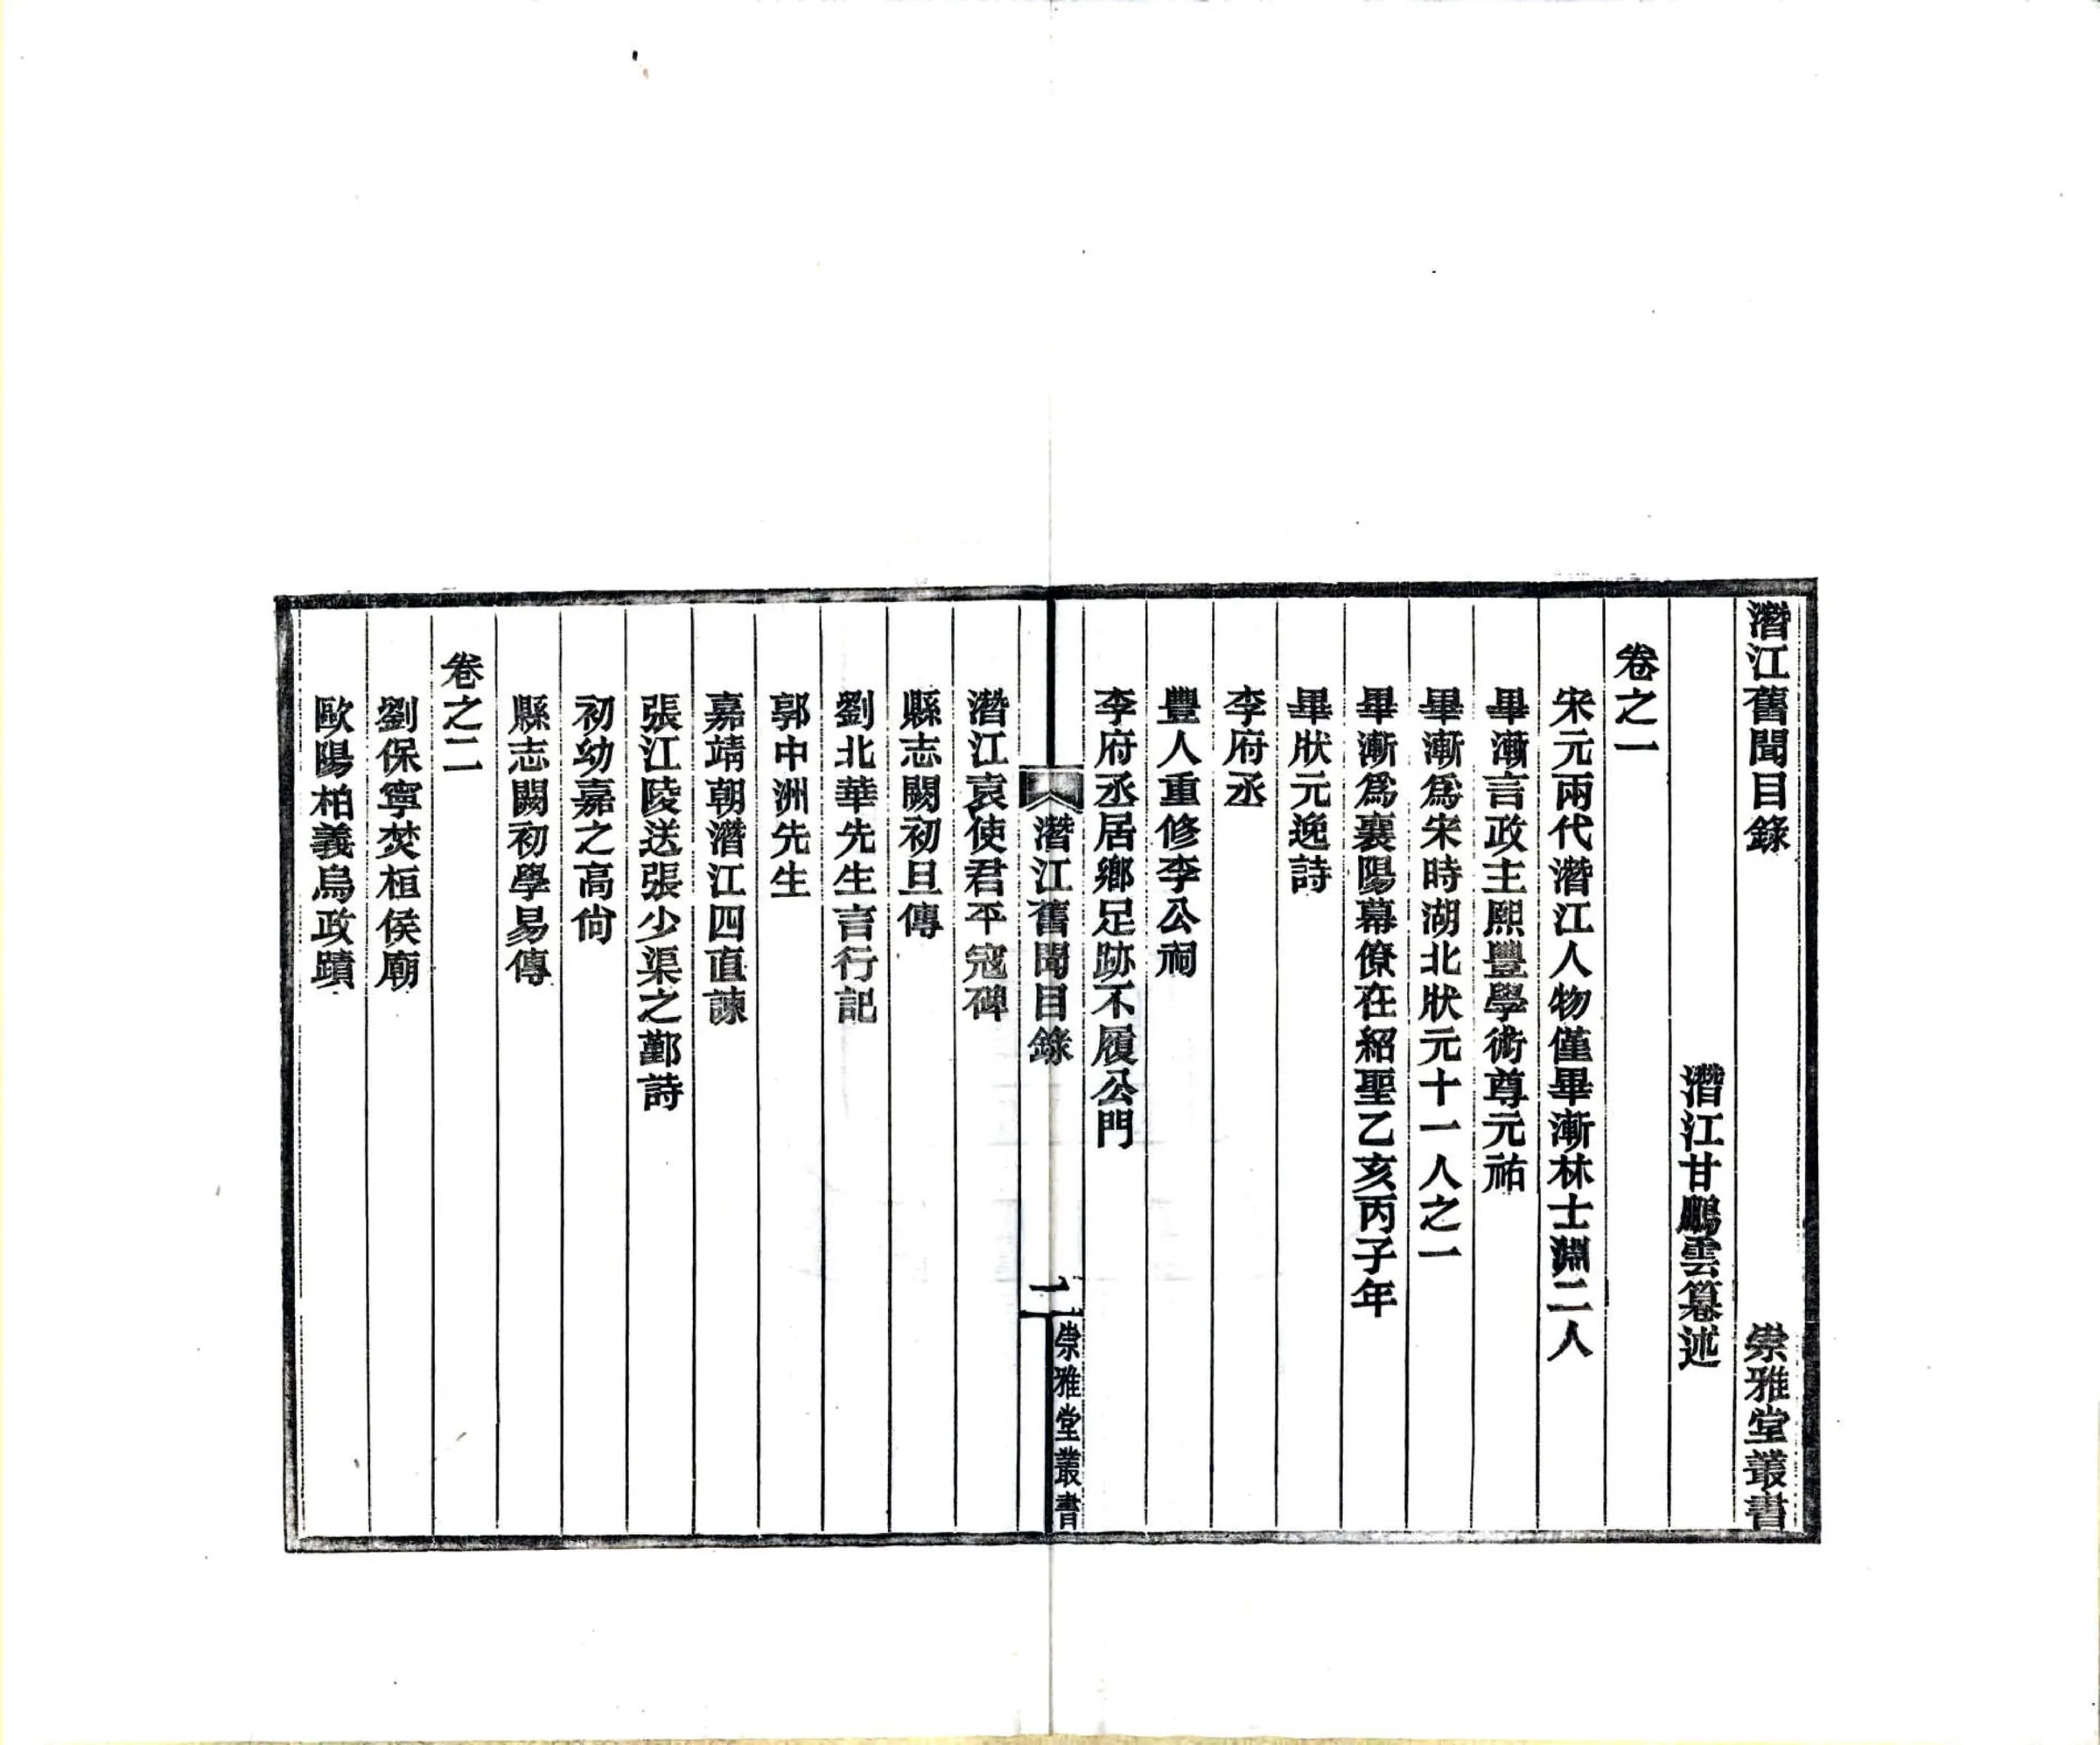 潛江舊聞目錄 崇雅堂叢書
潛江甘鵬雲纂述
卷之一
宋元兩代潛江人物僅畢漸林士淵二人
畢漸言政主熙豐學術尊元祐
畢漸爲宋時湖北狀元十一人之一
畢漸爲襄陽幕僚在紹聖乙亥丙子年
畢狀元逸詩
李府丞
豐人重修李公祠
李府丞居鄉足跡不履公門
潛江舊聞目錄 一 崇雅堂叢書
潛江袁使君平寇碑
縣志闕初旦傳
劉北華先生言行記
郭中洲先生
嘉靖朝潛江四直諫
張江陵送張少渠之鄞詩
初幼嘉之高尙
縣志闕初學易傳
卷之二
劉保寧焚桓侯廟
歐陽柏義烏政蹟